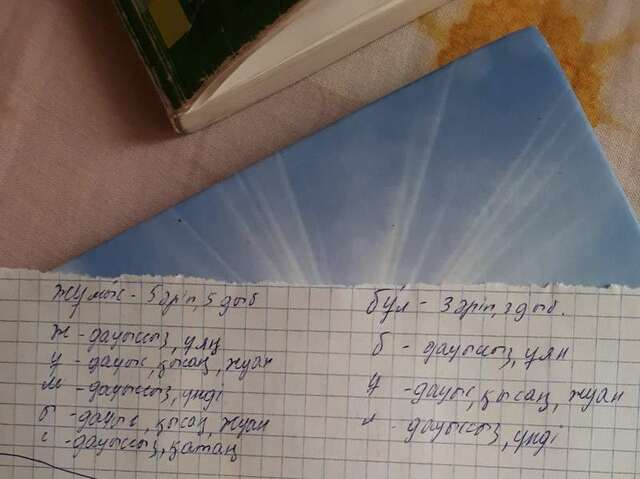 жұмыс - 5 әріп, 5 дыб
ж - дауыссыз, ұяң
ұ - дауыс, қысаң, жуан
м - дауыссыз, үнді
ы - дауыс, қысаң, жуан
с - дауыссыз, қатаң
бұл - 3 әріп, 3 дыб.
б - дауыссыз, ұян
ұ - дауыс, қысаң, жуан
л - дауыссыз, үнді